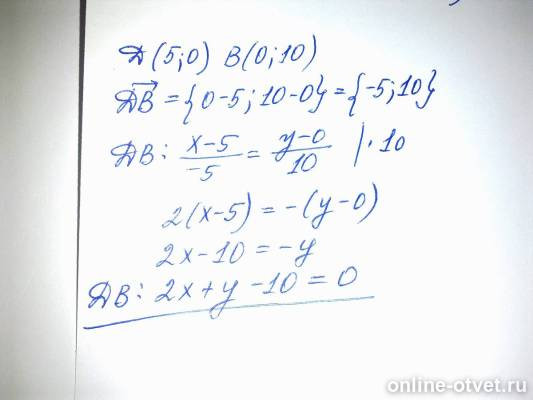 Д(5;0) В(0;10)
ДВ = {0-5; 10-0} = {-5; 10}
ДВ: x-5/-5 = y-0/10 |·10
2(x-5) = -(y-0)
2x-10 = -y
ДВ: 2x+y-10=0
online-otvet.ru